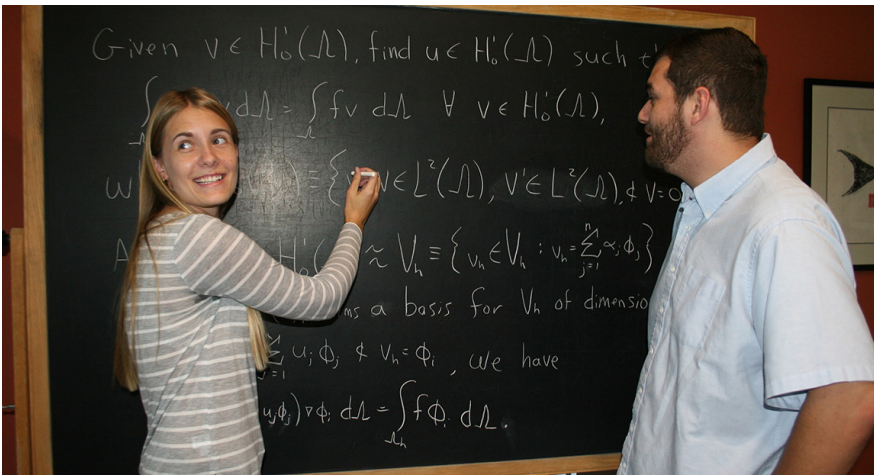 Given v ∈ H₀¹(Ω), find u ∈ H₀¹(Ω) such
∫_Ω v dΩ = ∫_Ω fv dΩ ∀ v ∈ H₀¹(Ω),
≡ {v : v ∈ L²(Ω), v' ∈ L²(Ω), & v=0
H₀¹( ≈ V_h ≡ {v_h ∈ V_h : v_h = Σ_{j=1}^{n} α_j φ_j}
a basis for V_h of
Σ_{j=1} u_j φ_j & v_h = φ_i, we have
u_j φ_j) ∇φ_i dΩ = ∫_{Ω_h} fφ_i dΩ.